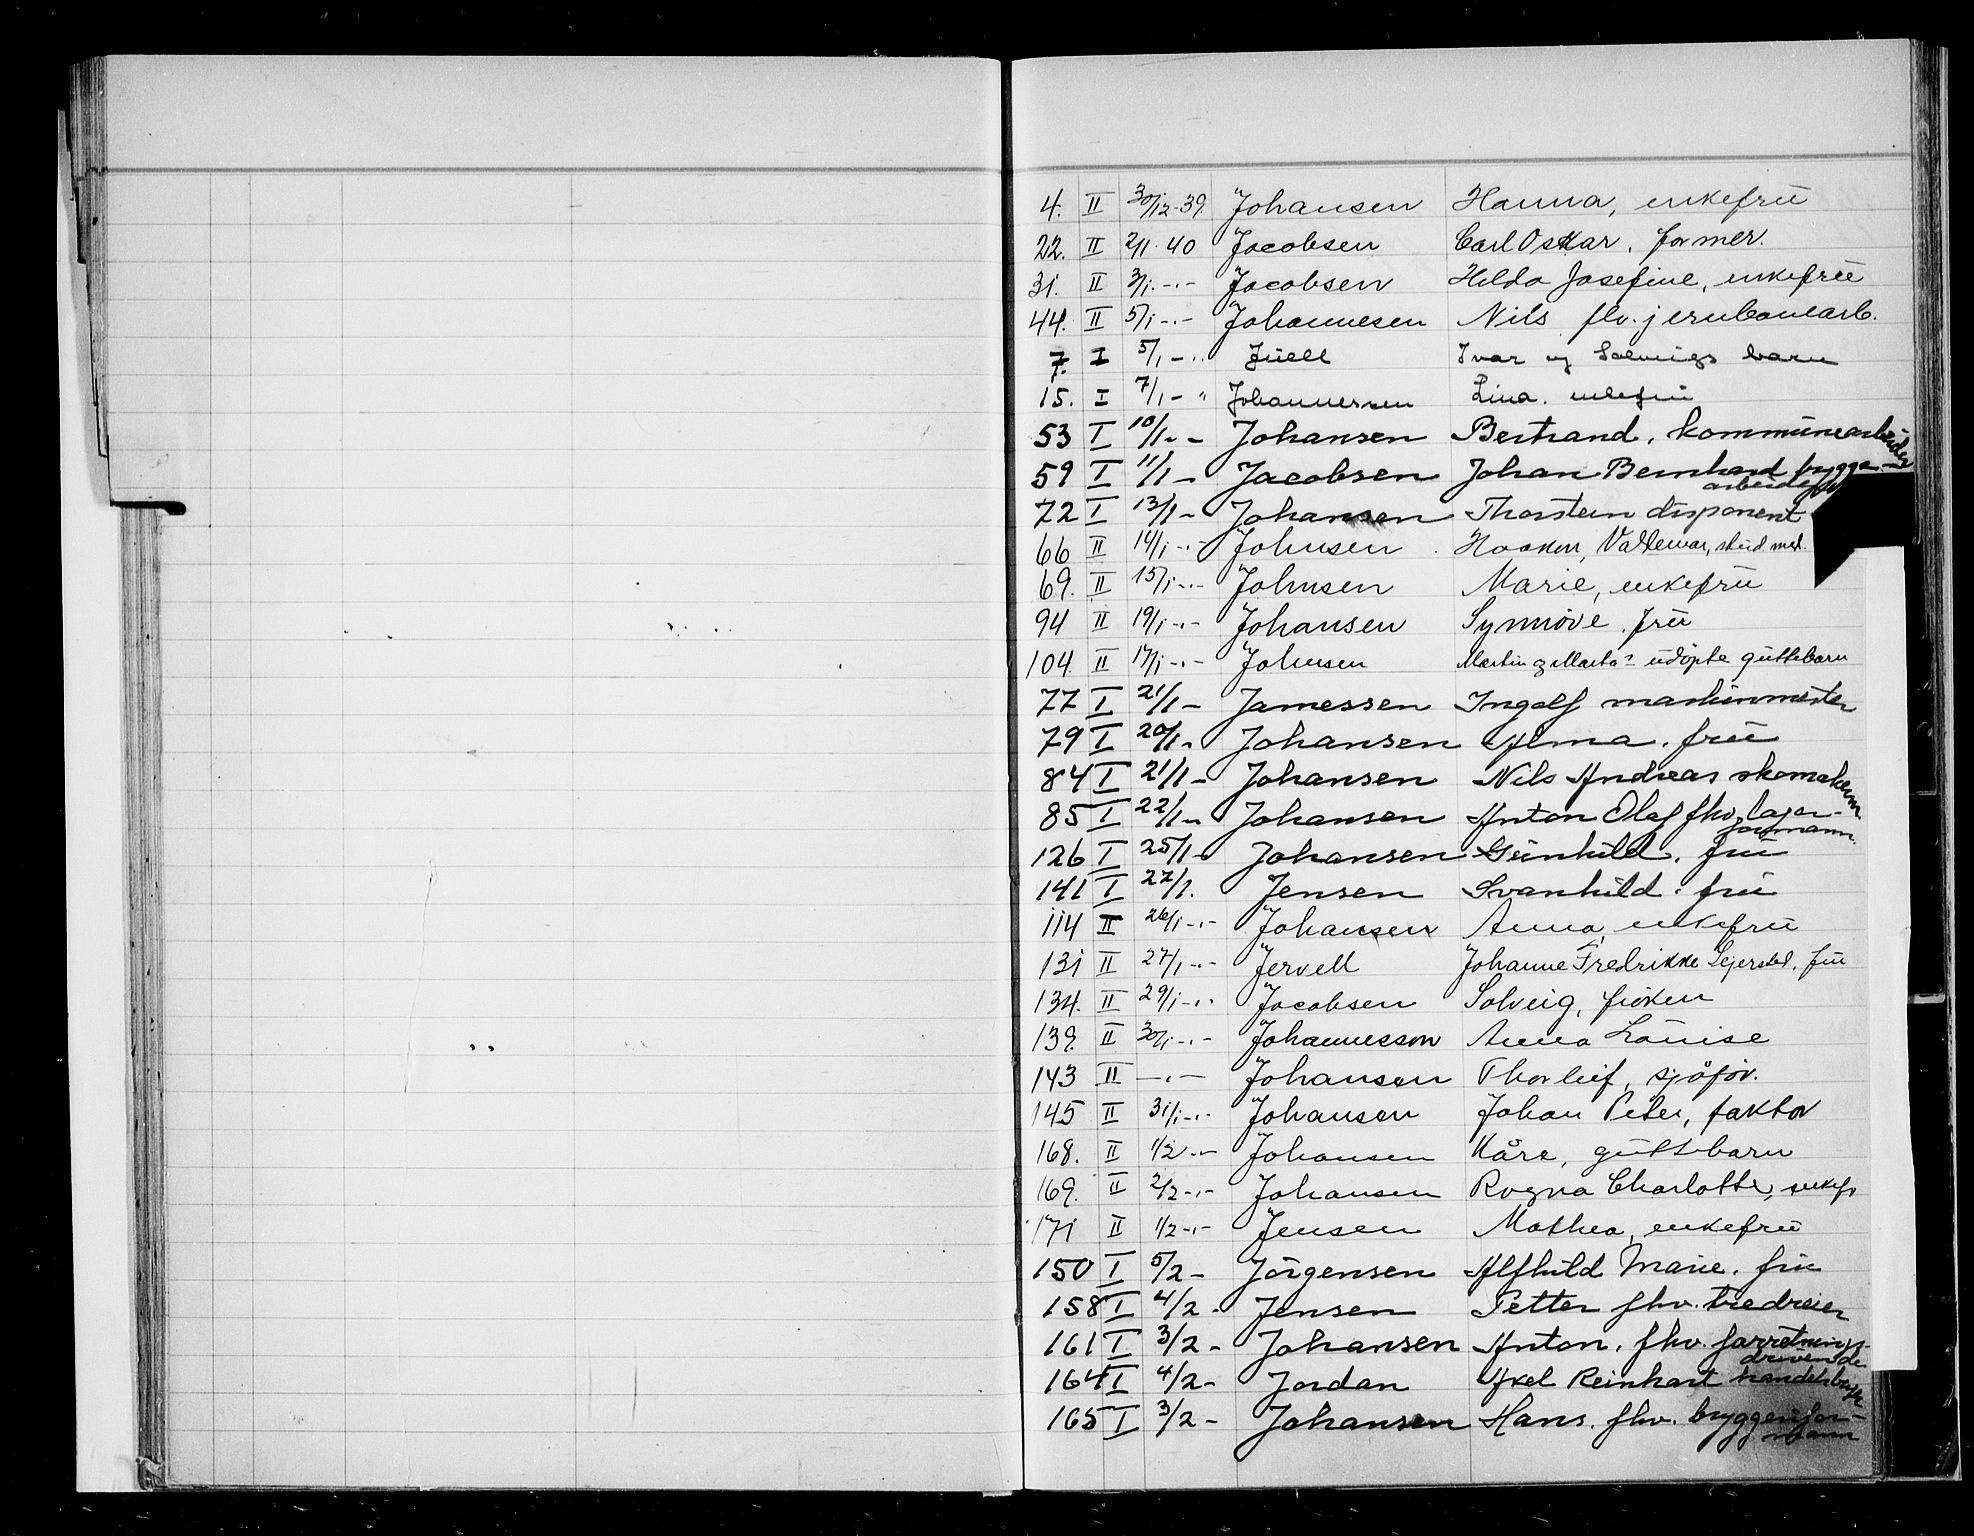 4. II 30/12-39. Johansen Hanna, enkefrü
22. II 2/1-40 Jacobsen Carl Oskar, former.
31. II 3/1.-.- Jacobsen Hilda Josefine, enkefrü
44. II 5/1-.- Johannesen Nils flv. jernbanearb.
7. I 5/1-.. Jüell Ivar og Solveigs barn
15. I 7/1-" Johannessen Lina. enkefrü
53 I 10/1-- Johansen Bertrand, kommünearbeider
59 I 11/1- Jacobsen Johan Bernhard brygge-
arbeider
72 I 13/1- Johansen Thorstein disponent
66 II 14/1-.- Johnsen Haakon, Valdemar, stud. med.
69. II 15/1-.- Johnsen Marie, enkefrü
94 II 19/1-.- Johansen Synnöve. frü
104. II 17/1-.- Johnsen Martin og Marta's üdöpte güttebarn
77 I 21/1- Jamessen Ingolf maskinmester
79 I 20/1- Johansen Alma. frü
84 I 21/1- Johansen Nils Andreas skomaker
85 I 22/1- Johansen Anton Olaf fhv. lager-
formann.
126 I 25/1- Johansen Günhild. frü
141 I 27/1. Jensen Svanhild. frü
114 II 26/1-.- Johansen Anna, enkefrü
131 II 27/1-.- Jervell Johanne Fredrikke Sejersted, frü
134. II 29/1-.. Jacobsen Solveig, fröken
139. II 30/1-.- Johannesson Anna Loüise
143 II -.- Johansen Thorleif, sjöfor.
145 II 31/1-.. Johansen Johan Peter, faktor
168. II 1/2.- Johansen Kåre, güttebarn
169. II 2/2-.- Johansen Ragna Charlotte, enkefr
171 II 1/2-.- Jensen Mathea, enkefrü
150 I 5/2- Jörgensen Alfhild Marie. frü
158 I 4/2- Jensen Petter fhv. tredreier
161 I 3/2- Johansen Anton. fhv. forretnings-
drivende
164 I 4/2- Jordan Axel Reinhart handelsbest.
165 I 3/2- Johansen Hans. fhv. bryggerifor-
mann